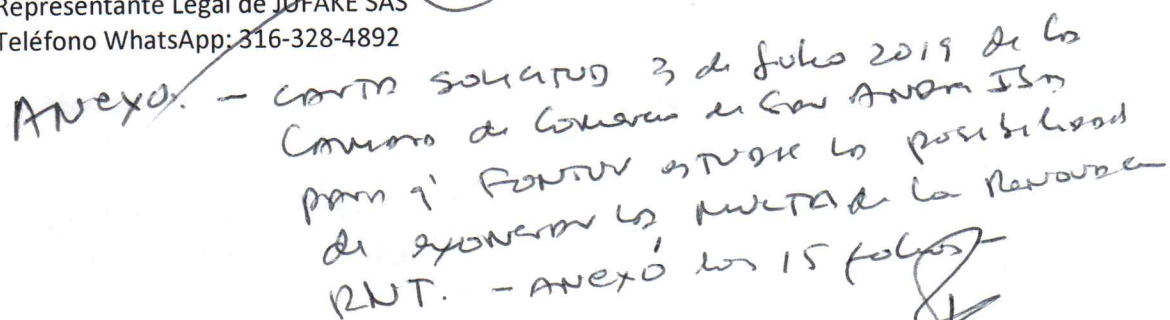 Representante Legal de JUFAKE SAS
Teléfono WhatsApp: 316-328-4892
ANexo. - CARTA SOLICITUD 3 de Julio 2019 de la
CAMARA de Comercio de San ANDRES Isla
para q' FONTUR ESTUDIE la posibilidad
de exonerar la MULTA de la Renovacion
RNT. - ANexó los 15 folios -